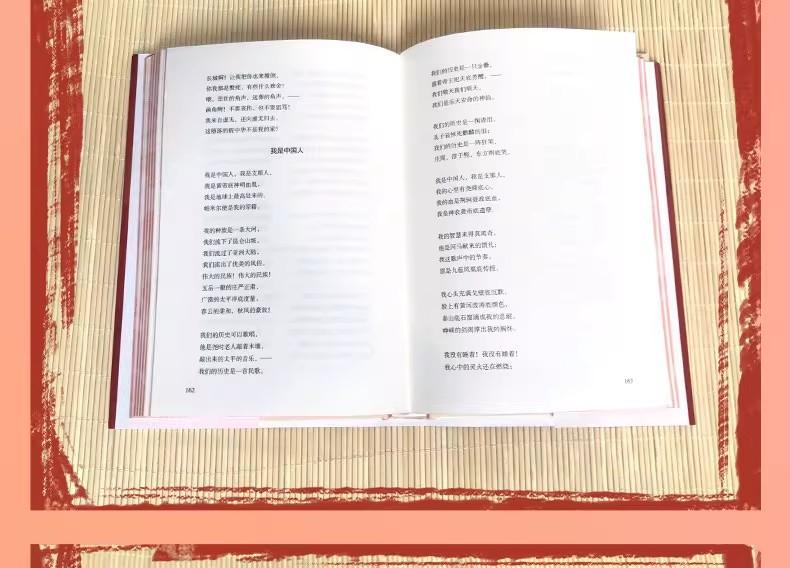 长城啊!让我把你也来撞倒,
你我都是赘疣,有些什么难舍?
哦,悲壮的角声,送葬的角声,——
画角啊!不要哀伤,也不要诅骂!
我来自虚无,还向虚无归去,
这堕落的假中华不是我的家!
我是中国人
我是中国人,我是支那人,
我是黄帝底神明血胤,
我是地球上最高处来的,
帕米尔便是我的原籍。
我的种族是一条大河,
我们流下了昆仑山坡,
我们流过了亚洲大陆,
我们流出了优美的风俗。
伟大的民族!伟大的民族!
五岳一般的庄严正肃,
广漠的太平洋底度量,
春云的柔和,秋风的豪放!
我们的历史可以歌唱,
他是尧时老人敲着木壤,
敲出来的太平的音乐,——
我们的历史是一首民歌。
162
我们的历史是一只金罍,
盛着帝王祀天底芳醴,——
我们敬天我们顺天,
我们是乐天安命的神仙。
我们的历史是一掬清泪,
孔子哀悼死麒麟的泪;
我们的历史是一阵狂笑,
庄周,淳于髡,东方朔底笑。
我是中国人,我是支那人,
我的心里有尧舜底心,
我的血是荆轲聂政底血,
我是神农黄帝底遗孽。
我的智慧来得真离奇,
他是河马献来的馈礼;
我这歌声中的节奏,
原是九苞凤凰底传授。
我心头充满戈壁底沉默,
脸上有黄河波涛底颜色,
泰山底石霤滴成我的忍耐,
峥嵘的剑阁撑出我的胸怀。
我没有睡着!我没有睡着!
我心中的灵火还在燃烧;
163